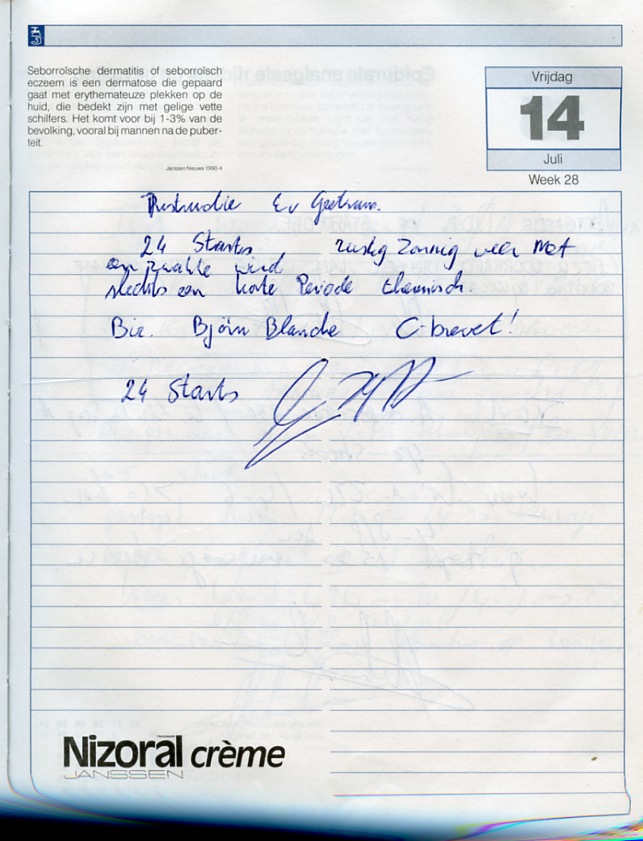 Seborroïsche dermatitis of seborroisch
eczeem is een dermatose die gepaard
gaat met erythemateuze plekken op de
huid, die bedekt zijn met gelige vette
schilfers. Het komt voor bij 1-3% van de
bevolking, vooral bij mannen na de puber-
teit.
Janssen Nieuws 1990-4
Vrijdag
14
Juli
Week 28
Instructie Ev Geetsum.
24 Starts rustig zonnig weer met
een zwakke wind
slechts een korte Periode thermisch.
Bir. Björn Blanche C-brevet!
24 Starts
Nizoral crème
JANSSEN